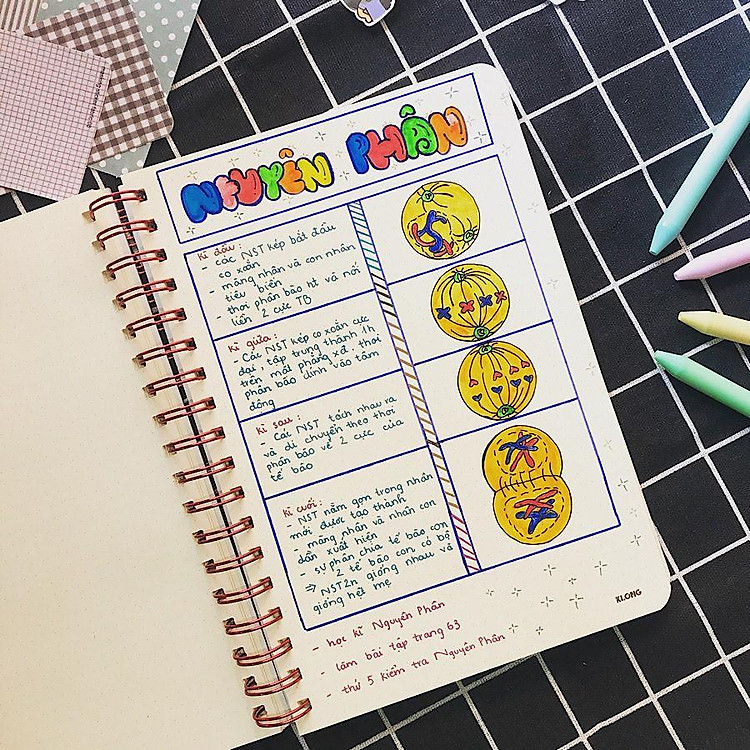 NGUYÊN PHÂN
kì đầu :
- các NST kép bắt đầu
co xoắn
- màng nhân và con nhân
tiêu biến
- thoi phân bào ht và nối
liền 2 cực TB
kì giữa :
- Các NST kép co xoắn cực
đại, tập trung thành 1h
trên mặt phẳng xđ. thoi
phân bào dính vào tâm
động
kì sau :
- Các NST tách nhau ra
và di chuyển theo thoi
phân bào về 2 cực của
tế bào
kì cuối :
- NST nằm gọn trong nhân
mới được tạo thành
- màng nhân và nhân con
dần xuất hiện
- sự phân chia tế bào con
⇒ 2 tế bào con có bộ
NST2n giống nhau và
giống hệt mẹ
- học kĩ Nguyên Phân
- làm bài tập trang 63
- thứ 5 kiểm tra Nguyên Phân
KLONG